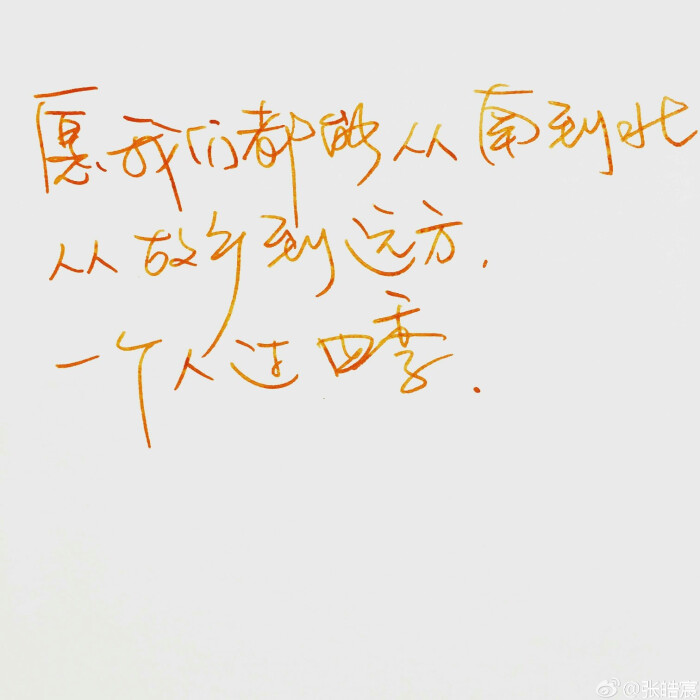 愿我们都能从南到北
从故乡到远方.
一个人过四季.
@张皓宸